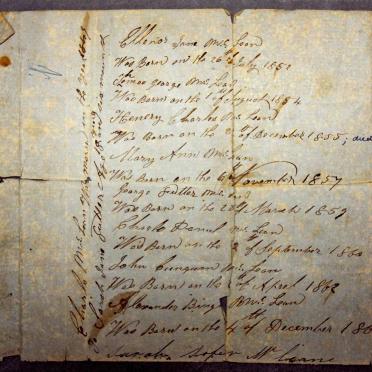 Ellenor Jane McLean
Was Born on the 26th July 1852
James George McLean
Was Born on the 1st August 1854
Henery Charles McLean
Was Born on the 2 of December 1855; died
Mary Ann McLean
Was Born on the 6 November 1857
George Fuller McLean
Was Born on the 22th March 1859
Charle Danul McLean
Was Born on the 2 of September 1860
John Cunguam McLean
Was Born on the 2 of April 1862
Alexander Bing McLean
Was Born on the 4th of December 186
Sarah McLeane
Charles McLean
Sarah Jane Fuller